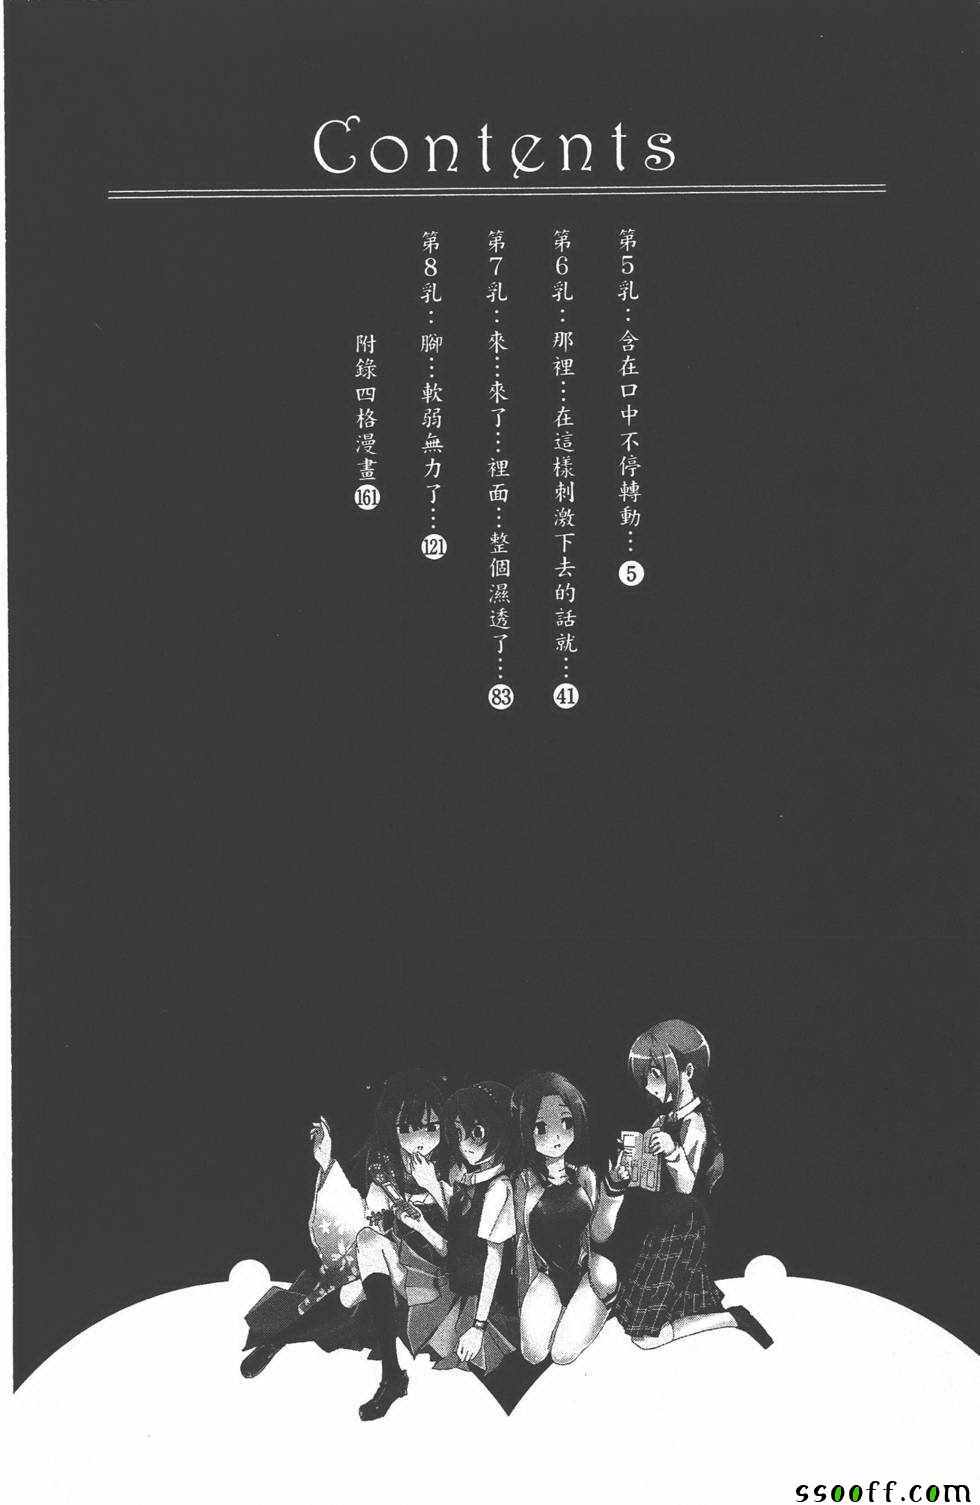 Contents
第5乳：含在口中不停轉動…5
第6乳：那裡…在這樣刺激下去的話就…41
第7乳：來…來了…裡面…整個濕透了…83
第8乳：腳…軟弱無力了…121
附錄四格漫畫161
ssooff.com